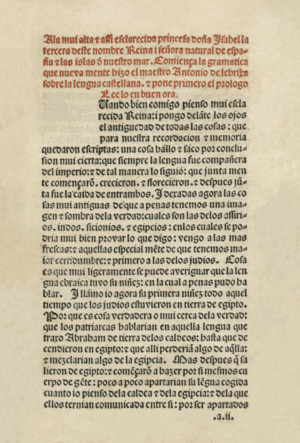 A la mui alta ⁊ assi esclarecida princesa doña Isabel la
tercera deste nombre Reina i señora natural de espa-
ña ⁊ las islas de nuestro mar. Comiença la gramatica
que nueva mente hizo el maestro Antonio de lebrixa
sobre la lengua castellana. ⁊ pone primero el prologo
Lee lo en buen ora.
Uando bien comigo pienso mui escla
recida Reina: i pongo delante los ojos
el antiguedad de todas las cosas: que
para nuestra recordacion ⁊ memoria
quedaron escriptas: una cosa hállo ⁊ sáco por conclu-
sion mui cierta: que siempre la lengua fue compañera
del imperio: ⁊ de tal manera lo siguió: que junta men
te començaron. crecieron. ⁊ florecieron. ⁊ despues jū
ta fue la caida de entrambos. I dexadas agora las co
sas mui antiguas de que a penas tenemos una ima-
gen ⁊ sombra dela verdad: cuales son las delos assiri
os. indos. sicionios. ⁊ egipcios: enlos cuales se po-
dria mui bien provar lo que digo: vengo a las mas
frescas: ⁊ aquellas especial mēte de que tenemos ma-
ior certidumbre: ⁊ primero a las delos judios. Cosa
es que mui ligera mente se puede averiguar que la len
gua ebraica tuvo su niñez: en la cual a penas pudo ha
blar. I llámo io agora su primera niñez todo aquel
tiempo que los judios estuvieron en tierra de egipto.
Por que es cosa verdadera o mui cerca dela verdad:
que los patriarcas hablarian en aquella lengua que
traxo Abraham de tierra delos caldeos: hasta que de
cendieron en egipto: ⁊ que alli perderian algo de aq̄lla:
⁊ mezclarian algo dela egipcia. Mas despues q̄ sa
lieron de egipto: ⁊ començarō a hazer por si mesmos cu
erpo de gēte: poco a poco apartarian su lēgua cogida
cuanto io pienso dela caldea ⁊ dela egipcia: ⁊ dela que
ellos ternian comunicada entre si: por ser apartados
.a.ii.